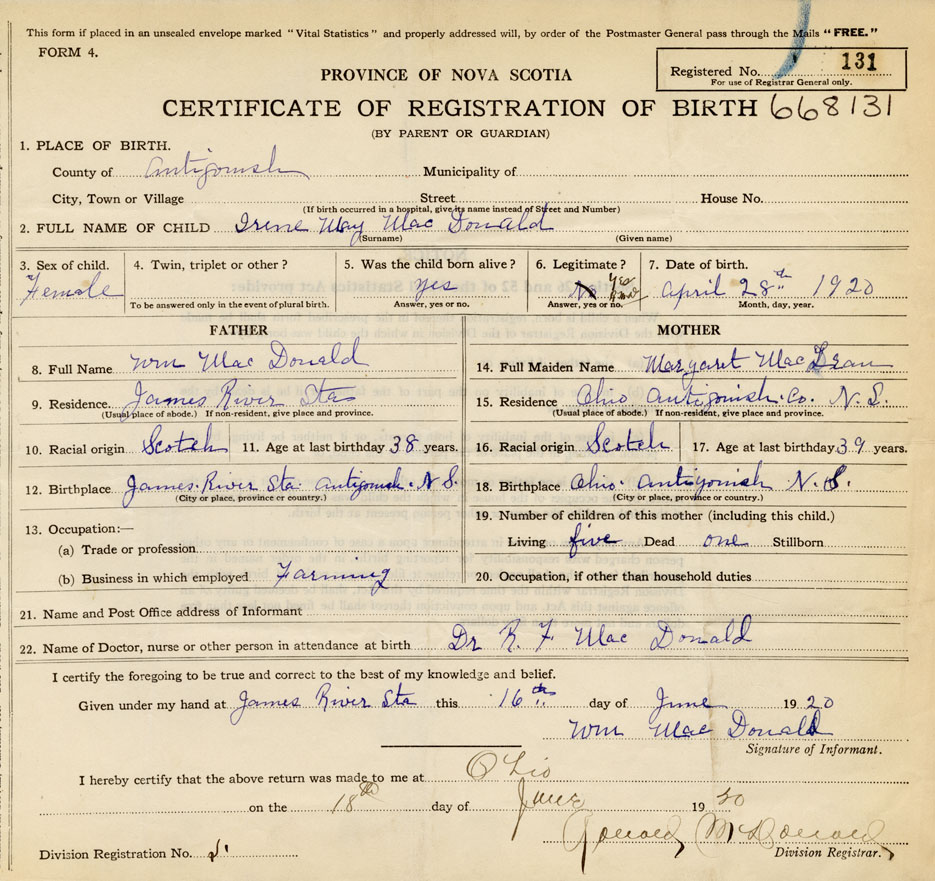 This form if placed in an unsealed envelope marked "Vital Statistics" and properly addressed will, by order of the Postmaster General pass through the Mails "FREE."
FORM 4.
Registered No. 131
For use of Registrar General only.
PROVINCE OF NOVA SCOTIA
CERTIFICATE OF REGISTRATION OF BIRTH 668131
(BY PARENT OR GUARDIAN)
1. PLACE OF BIRTH.
County of Antigonish Municipality of
City, Town or Village Street House No.
(If birth occurred in a hospital, give its name instead of Street and Number)
2. FULL NAME OF CHILD Irene May Mac Donald
(Surname) (Given name)
3. Sex of child. 4. Twin, triplet or other? 5. Was the child born alive? 6. Legitimate? 7. Date of birth.
Female yes No Yes April 28th 1920
To be answered only in the event of plural birth. Answer, yes or no. Answer, yes or no. Month, day, year.
FATHER
8. Full Name Wm Mac Donald
9. Residence. James River Sta
(Usual place of abode.) If non-resident, give place and province.
10. Racial origin Scotch 11. Age at last birthday 38 years.
12. Birthplace James River Sta. Antigonish. N S.
(City or place, province or country.)
13. Occupation:—
(a) Trade or profession
(b) Business in which employed Farming
MOTHER
14. Full Maiden Name Margaret Mac Lean
15. Residence Ohio Antigonish Co. N. S.
(Usual place of abode.) If non-resident, give place and province.
16. Racial origin Scotch 17. Age at last birthday 39 years.
18. Birthplace Ohio. Antigonish N. S.
(City or place, province or country.)
19. Number of children of this mother (including this child.)
Living five Dead one Stillborn
20. Occupation, if other than household duties
21. Name and Post Office address of Informant
22. Name of Doctor, nurse or other person in attendance at birth Dr R. F Mac Donald
I certify the foregoing to be true and correct to the best of my knowledge and belief.
Given under my hand at James River Sta this 16th day of June 1920
Wm Mac Donald
Signature of Informant.
I hereby certify that the above return was made to me at Ohio
on the 18th day of June 1920
Ronald McDonald
Division Registrar.
Division Registration No.